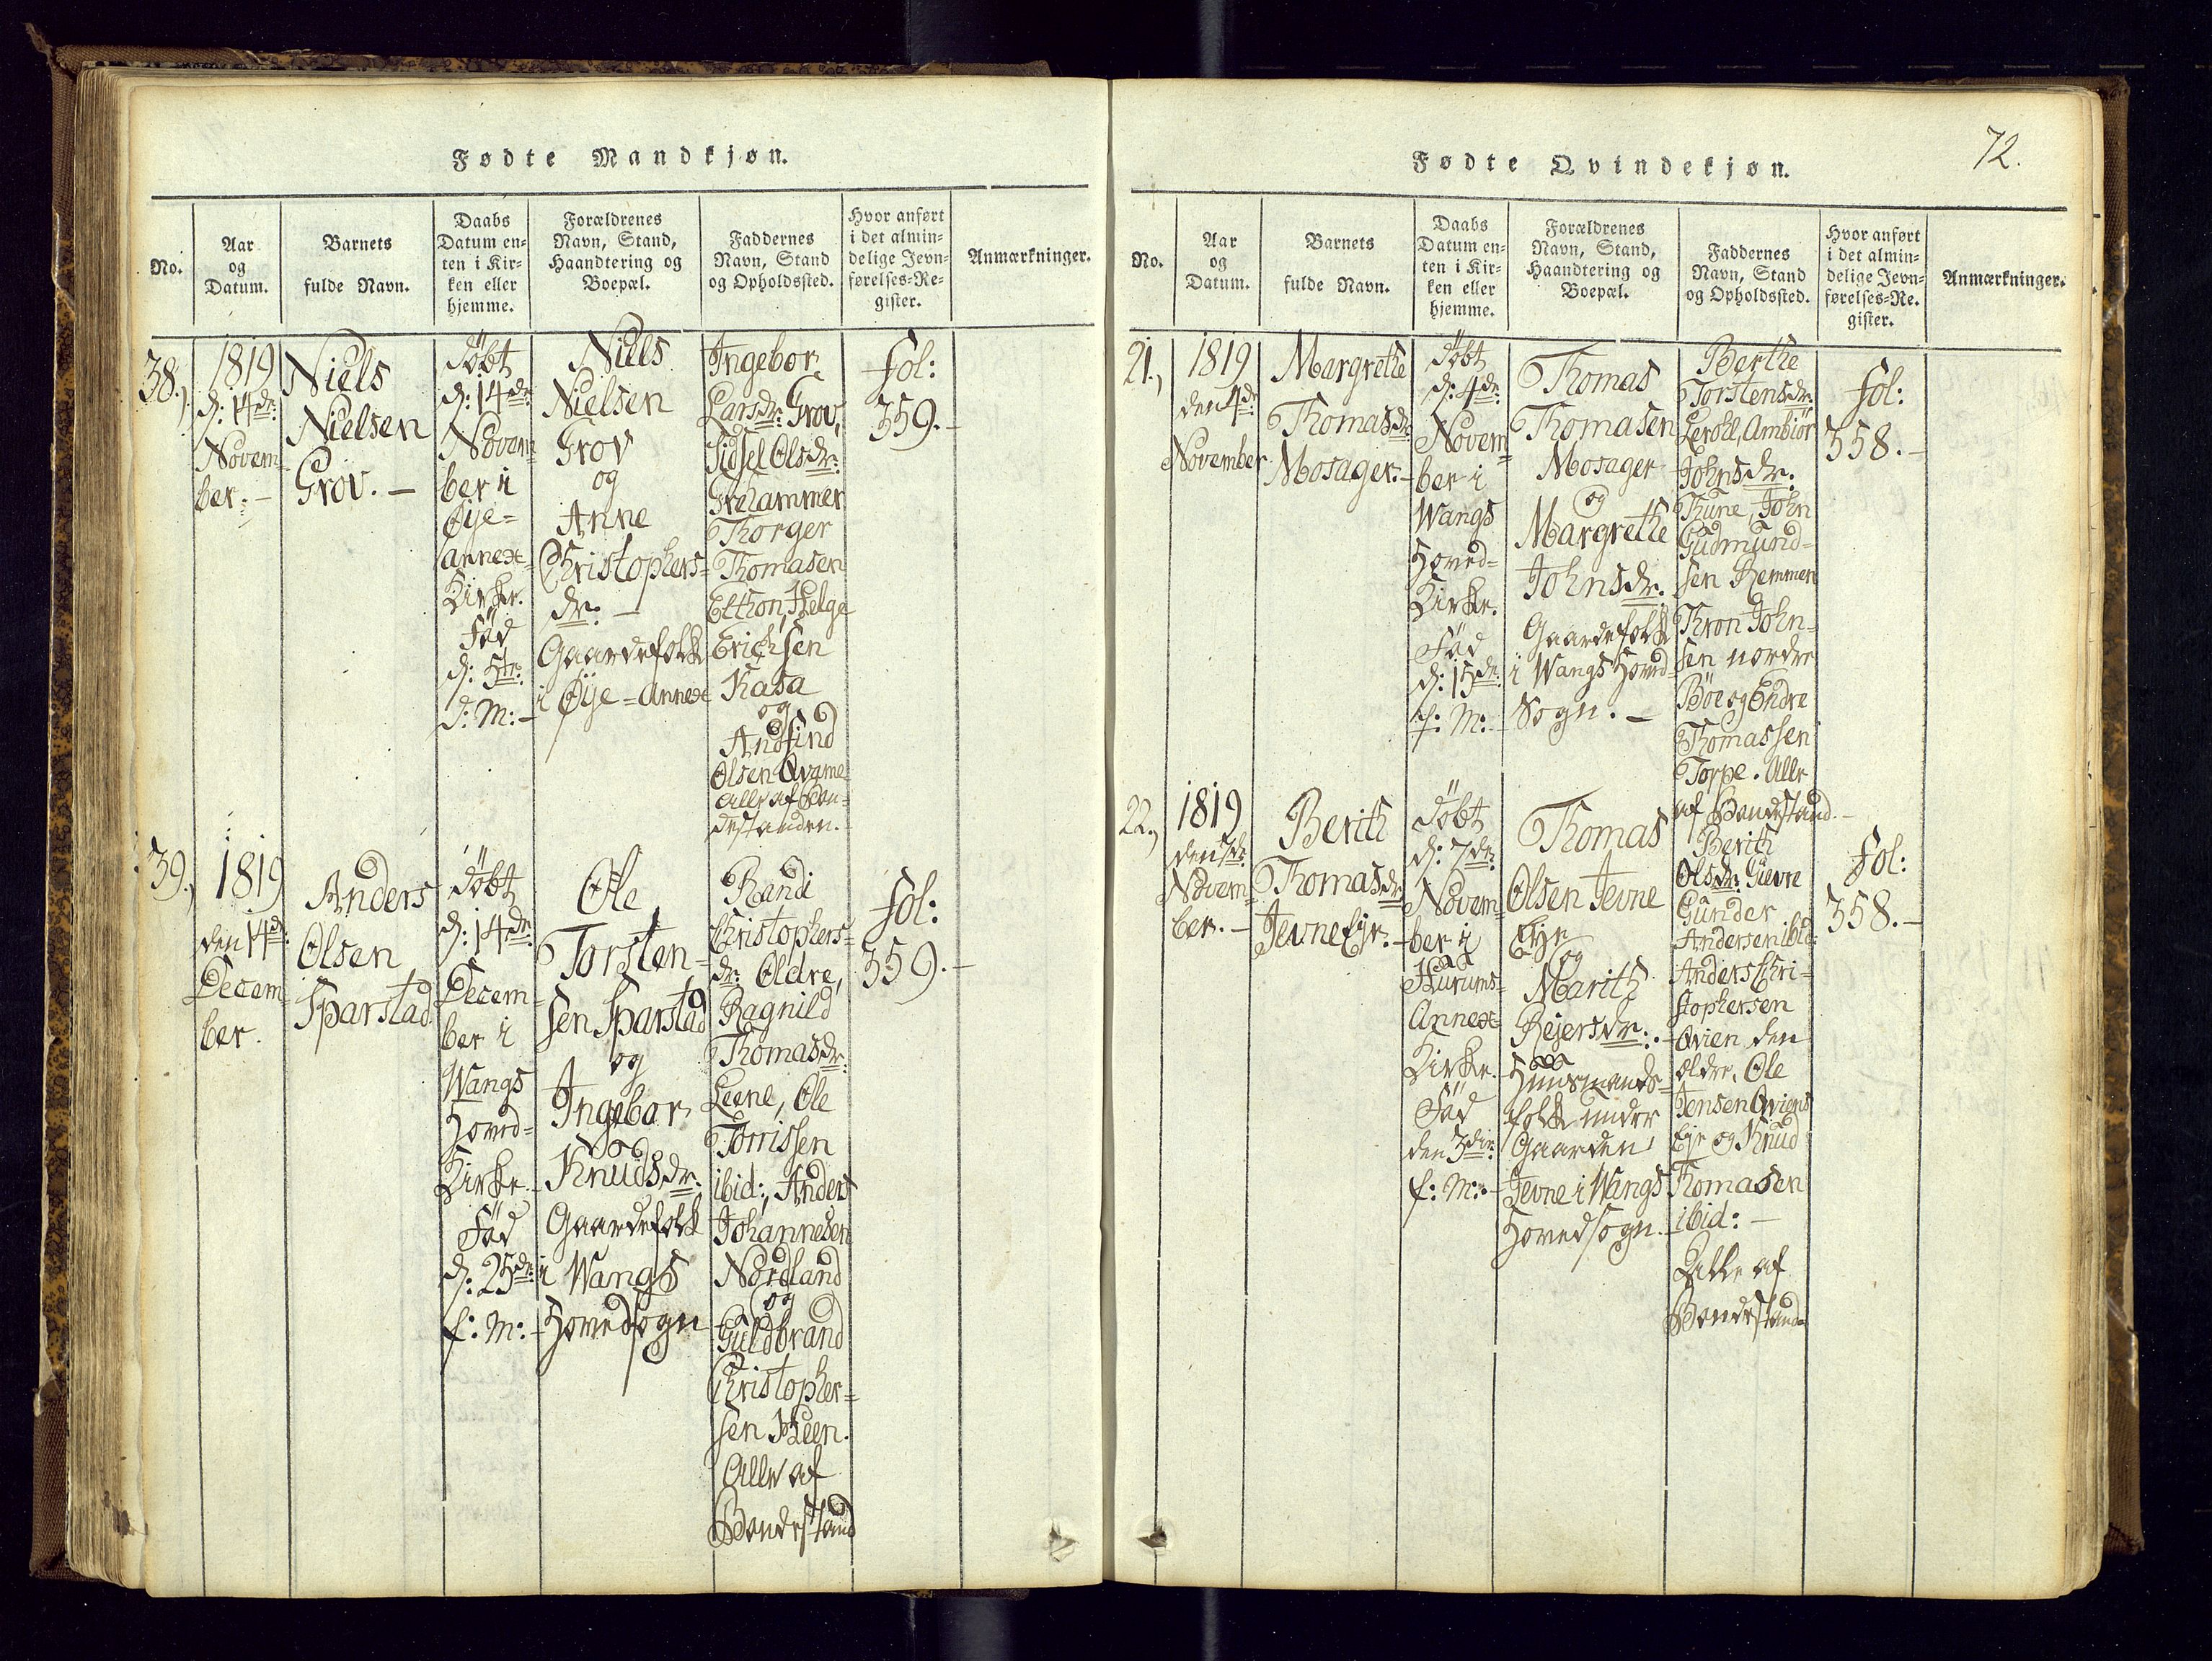 Fødte Mandkjøn.
No.
Aar
og
Datum.
Barnets
fulde Navn.
Daabs
Datum en-
ten i Kir-
ken eller
hjemme.
Forældrenes
Navn, Stand,
Haandtering og
Boepæl.
Faddernes
Navn, Stand
og Opholdssted.
Hvor anført
i det almin-
delige Jevn-
førelses-Re-
gister.
Anmærkninger.
38.,
1819
d: 14de
Novem-
ber. –
Niels
Nielsen
Grov. –
Döbt
d: 14de
Novem-
ber i
Øije-
annex-
Kirke.
Föd
d: 5te
s: M: –
Niels
Nielsen
Grov
og
Anne
Christophers-
dr. –
Gaardefolk
i Øije-Annex
Ingebor
Larsdr: Grov,
Sidsel Olsdr:
Grihammer
Thorger
Thomasen
Elthon, Helge
Erichsen
Kasa
og
Andfind
Olsen Qvame
Alle af Bon-
destanden.
fol:
359. –
39.,
1819
den 14de
Decem-
ber.
Anders
Olsen
Sparstad
Döbt
d: 14de
Decem-
ber i
Wangs
Hoved-
Kirke. –
Föd
d: 25de
f: M: –
Ole
Torsten-
sen Sparstad
og
Ingebor
Knudsdr.
Gaardefolk
i Wangs
Hovedsogn
Randi
Christophers-
dr: Oldre,
Ragnild
Thomasdr:
Leene, Ole
Torrissen
ibid:, Anders
Johannesen
Nordland
og
Guldbrand
Christopher-
sen Heen.
Alle af
Bondestand
fol:
359. –
72.
Fødte Qvindekjøn.
No.
Aar
og
Datum.
Barnets
fulde Navn.
Daabs
Datum en-
ten i Kir-
ken eller
hjemme.
Forældrenes
Navn, Stand,
Haandtering og
Boepæl.
Faddernes
Navn, Stand
og Opholdssted.
Hvor anført
i det almin-
delige Jevn-
førelses-Re-
gister.
Anmærkninger.
21.,
1819
den 4de
November
Margrethe
Thomasdr
Mosager. –
Döbt
d: 4de
Novem-
ber i
Wangs
Hoved-
Kirke.
Föd
d: 15de
f: M: –
Thomas
Thomasen
Mosager
og
Margrethe
Johnsdr.
Gaardefolk
i Wangs Hoved-
Sogn. –
Berthe
Torstensdr.
Lerohl, Ambiör
Johnsdr:
Thune, John
Gudmund-
sen Remmen
Thron John-
sen nordre
Böe og Endre
Thomassen
Torpe. Alle
af Bondestand. –
fol:
358. –
22.,
1819
den 7de
Novem-
ber. –
Berith
Thomasdr
Jevne Eje. –
Döbt
d: 7de
Novem-
ber i
Hurums-
Annex
Kirke.
Föd
den 3die
f: M: –
Thomas
Olsen Jevne
Eje
og
Marith
Rejersdr. –
Huusmands-
folk under
Gaarden
Jevne i Wangs
Hovedsogn. –
Berith
Olsdr: Gievre
Gunder
Andersen ibid:
Anders Chri-
stophersen
Qvien den
ældre, Ole
Jensen Qviens
Eje og Knud
Thomasen
ibid: –
Alle af
Bondestand
fol:
358. –